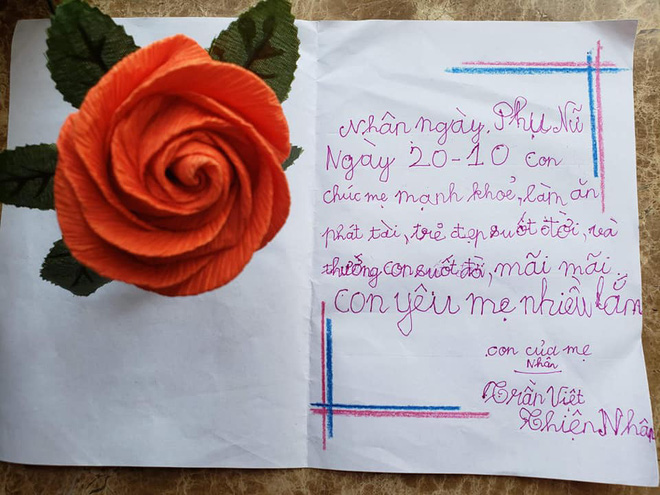 Nhân ngày. Phụ Nữ
Ngày 20-10 con
chúc mẹ mạnh khoẻ, làm ăn
phát tài, trẻ đẹp suốt đời, và
thưởng con suốt đời, mãi mãi.
con yêu mẹ nhiều lắm
con của mẹ
Nhân
Trần Việt
Thiện Nhân